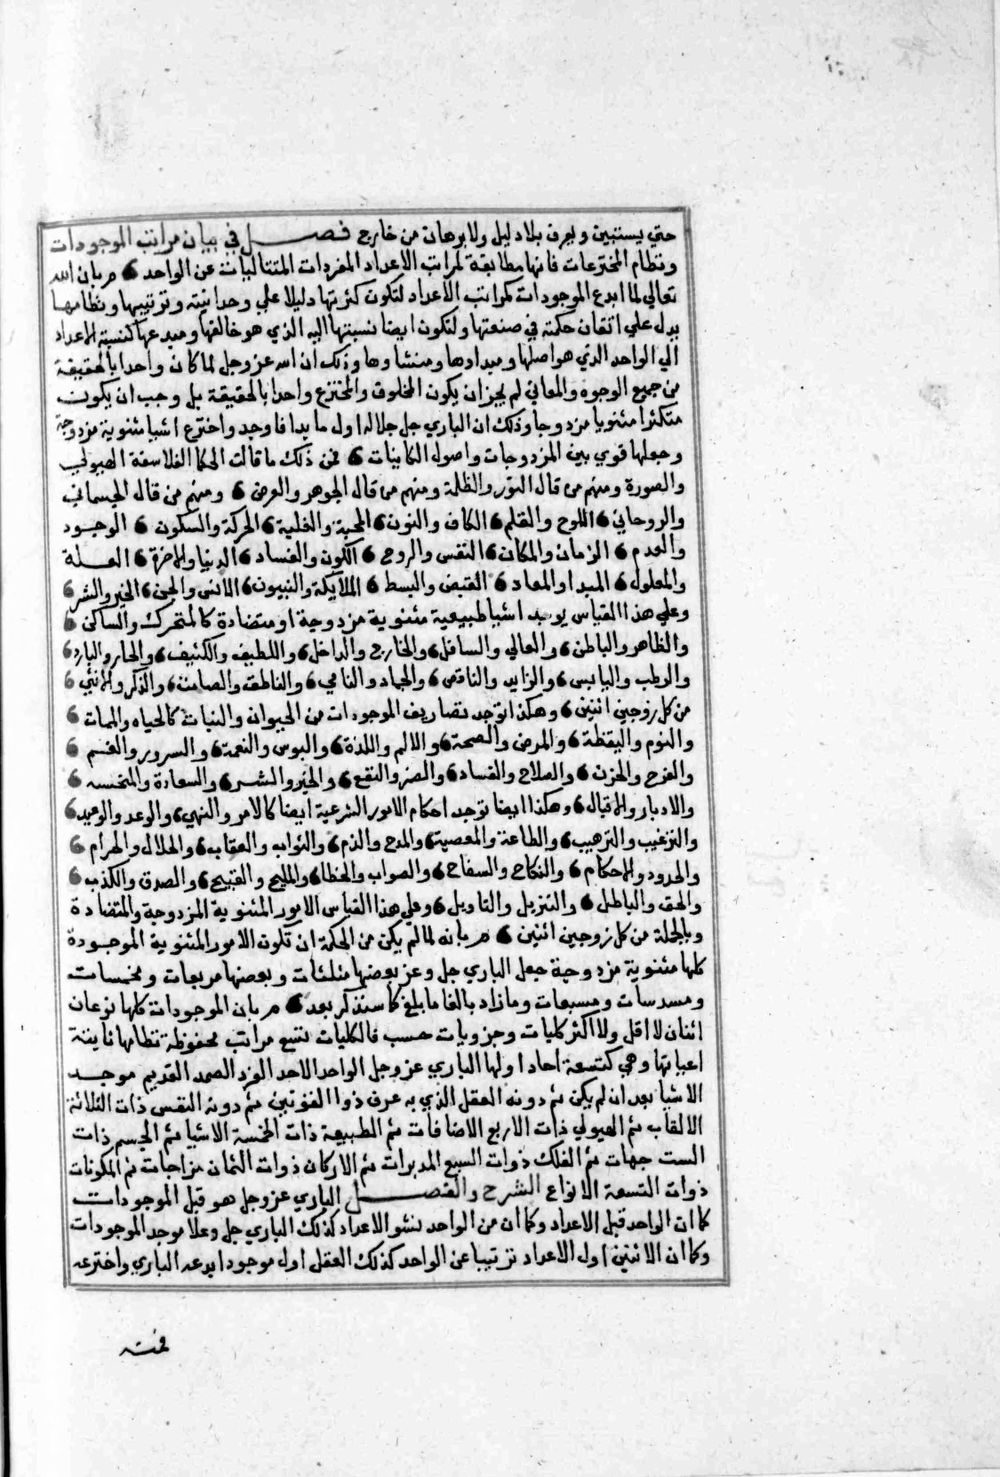 حتي يستبين ويعرف بلا دليل ولا برهان من خارج فصل في بيان مراتب الموجودات
ونظام المخترعات فانها مطابقة لمراتب الاعداد المفردات المتتاليات عن الواحد 6 مر بان الله
تعالي لما ابدع الموجودات كمراتب الاعداد لتكون كثرتها دليلا علي وحدانيته وترتيبها ونظامها
يدل علي اتقان حكمته في صنعتها ولتكون ايضا نسبتها اليه الذي هو خالقها ومبدعها كنسبة الاعداد
الي الواحد الذي هو اصلها ومبداوها ومنشاوها وذلك ان الله عز وجل لما كان واحدا بالحقيقة
من جميع الوجوه والمعاني لم يجز ان يكون المخلوق والمخترع واحدا بالحقيقة بل وجب ان يكون
متكثرا مثنويا مزدوجا وذلك ان الباري جل جلاله اول ما بدا فاوجد واخترع اشيا مثنوية مزدوجة
وجعلها قوي بين المزدوجات واصول الكاينات 6 فمن ذلك ما قالت الحكما الفلاسفة الهيولي
والصورة ومنهم من قال النور والظلمة ومنهم من قال الجوهر والعرض 6 ومنهم من قال الجسماني
والروحاني 6 اللوح والقلم 6 الكاف والنون 6 المحبة والغلبة 6 الحركة والسكون 6 الوجود
والعدم 6 الزمان والمكان 6 النفس والروح 6 الكون والفساد 6 الدنيا والاخرة 6 العلة
والمعلول 6 المبدا والمعاد 6 القبض والبسط 6 الملايكة والنبيون 6 الانس والجن 6 الخير والشر 6
وعلي هذا القياس يوجد اشيا طبيعية مثنوية مزدوجة او متضادة كالمتحرك والساكن 6
والظاهر والباطن 6 والعالي والسافل 6 والخارج والداخل 6 واللطيف والكثيف 6 والحار والبارد 6
والرطب واليابس 6 والزايد والناقص 6 والجماد والنامي 6 والناطق والصامت 6 والذكر والانثي 6
من كل زوجين اثنين 6 وهكذا توجد تصاريف الموجودات من الحيوان والنبات كالحياه والممات 6
والنوم واليقظة 6 والمرض والصحة 6 والالم واللذة 6 والبوس والنعمة 6 والسرور والغم 6
والفرح والحزن 6 والصلاح والفساد 6 والضر والنفع 6 والخير والشر 6 والسعادة والمنحسه 6
والادبار والاقبال 6 وهكذا ايضا توجد احكام الامور الشرعية ايضا كالامر والنهي 6 والوعد والوعيد 6
والترغيب والترهيب 6 والطاعة والمعصية 6 والمدح والذم 6 والثواب والعقاب 6 والحلال والحرام 6
والحدود والاحكام 6 والنكاح والسفاح 6 والصواب والخطا 6 والمليح والقبيح 6 والصدق والكذب 6
والحق والباطل 6 والتنزيل والتاويل 6 وعلي هذا القياس الامور المثنوية المزدوجة والمتضادة
وبالجملة من كل زوجين اثنين 6 مر بانه لما لم يكن من الحكمة ان تكون الامور المثنوية الموجودة
كلها مثنوية مزدوجة جعل الباري جل وعز بعضها مثلثات وبعضها مربعات ومخمسات
ومسدسات ومسبعات وما زاد بالغا ما بلغ كما سنذكر بعد 6 مر بان الموجودات كلها نوعان
اثنان لا اقل ولا اكثر كليات وجزويات حسب فالكليات تسع مراتب محفوظة نظامها ثابتة
اعيانها وهي كتسعة احاد اولها الباري عز وجل الواحد الاحد الفرد الصمد القديم موجد
الاشيا بعد ان لم يكن ثم دونه العقل الذي به عرف ذوا القوتين ثم دونه النفس ذات الثلاثة
الالقاب ثم الهيولي ذات الاربع الاضافات ثم الطبيعة ذات الخمسة الاشيا ثم الجسم ذات
الست جهات ثم الفلك ذوات السبع المدبرات ثم الاركان ذوات الثمان مزاجات ثم المكونات
ذوات التسعة الانواع الشرح والفصل الباري عز وجل هو قبل الموجودات
كما ان الواحد قبل الاعداد وكما ان من الواحد نشو الاعداد كذلك الباري جل وعلا موجد الموجودات
وكما ان الاثنين اول الاعداد ترتيبا عن الواحد كذلك العقل اول موجود ابدعه الباري واخترعه